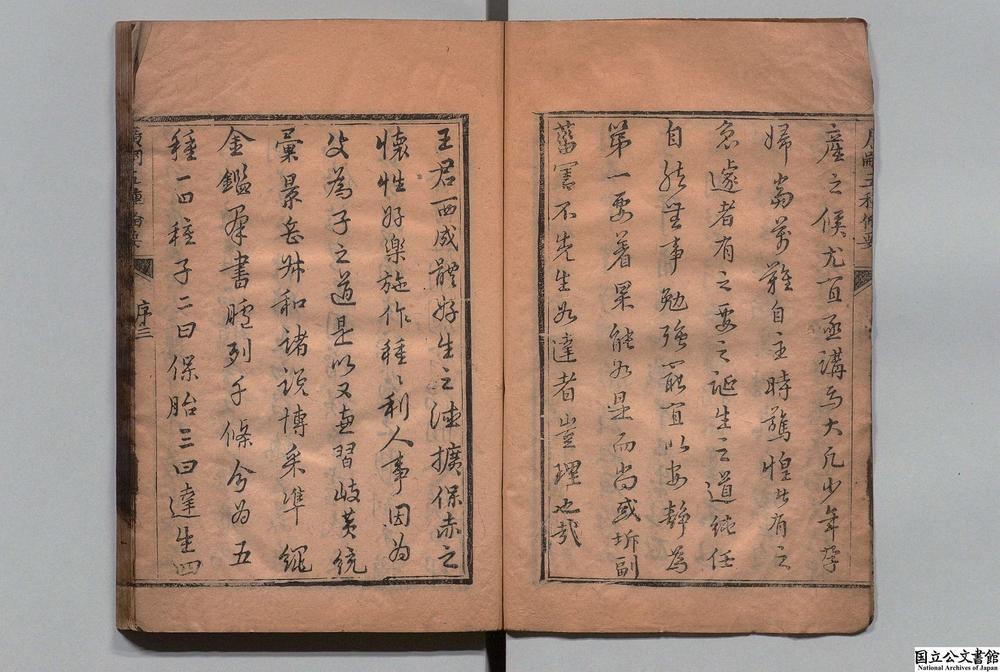 廣嗣五種備要
產之候尤宜亟講焉大凡少年孕
婦當萬難自主時驚惶者有之
急遽者有之要之誕生之道純任
自然無事勉強最宜以安靜為
第一要着果能如是而尚或坼副
菑害不先生如達者豈理也哉
王君西成體好生之德擴保赤之
懷性好樂施作種々利人事因為
父為子之道是以又兼習岐黃統
彙景岳叔和諸說博采準繩
金鑑群書臚列千條分為五
種一曰種子二曰保胎三曰達生四
廣嗣五種備要
序三
国立公文書館
National Archives of Japan